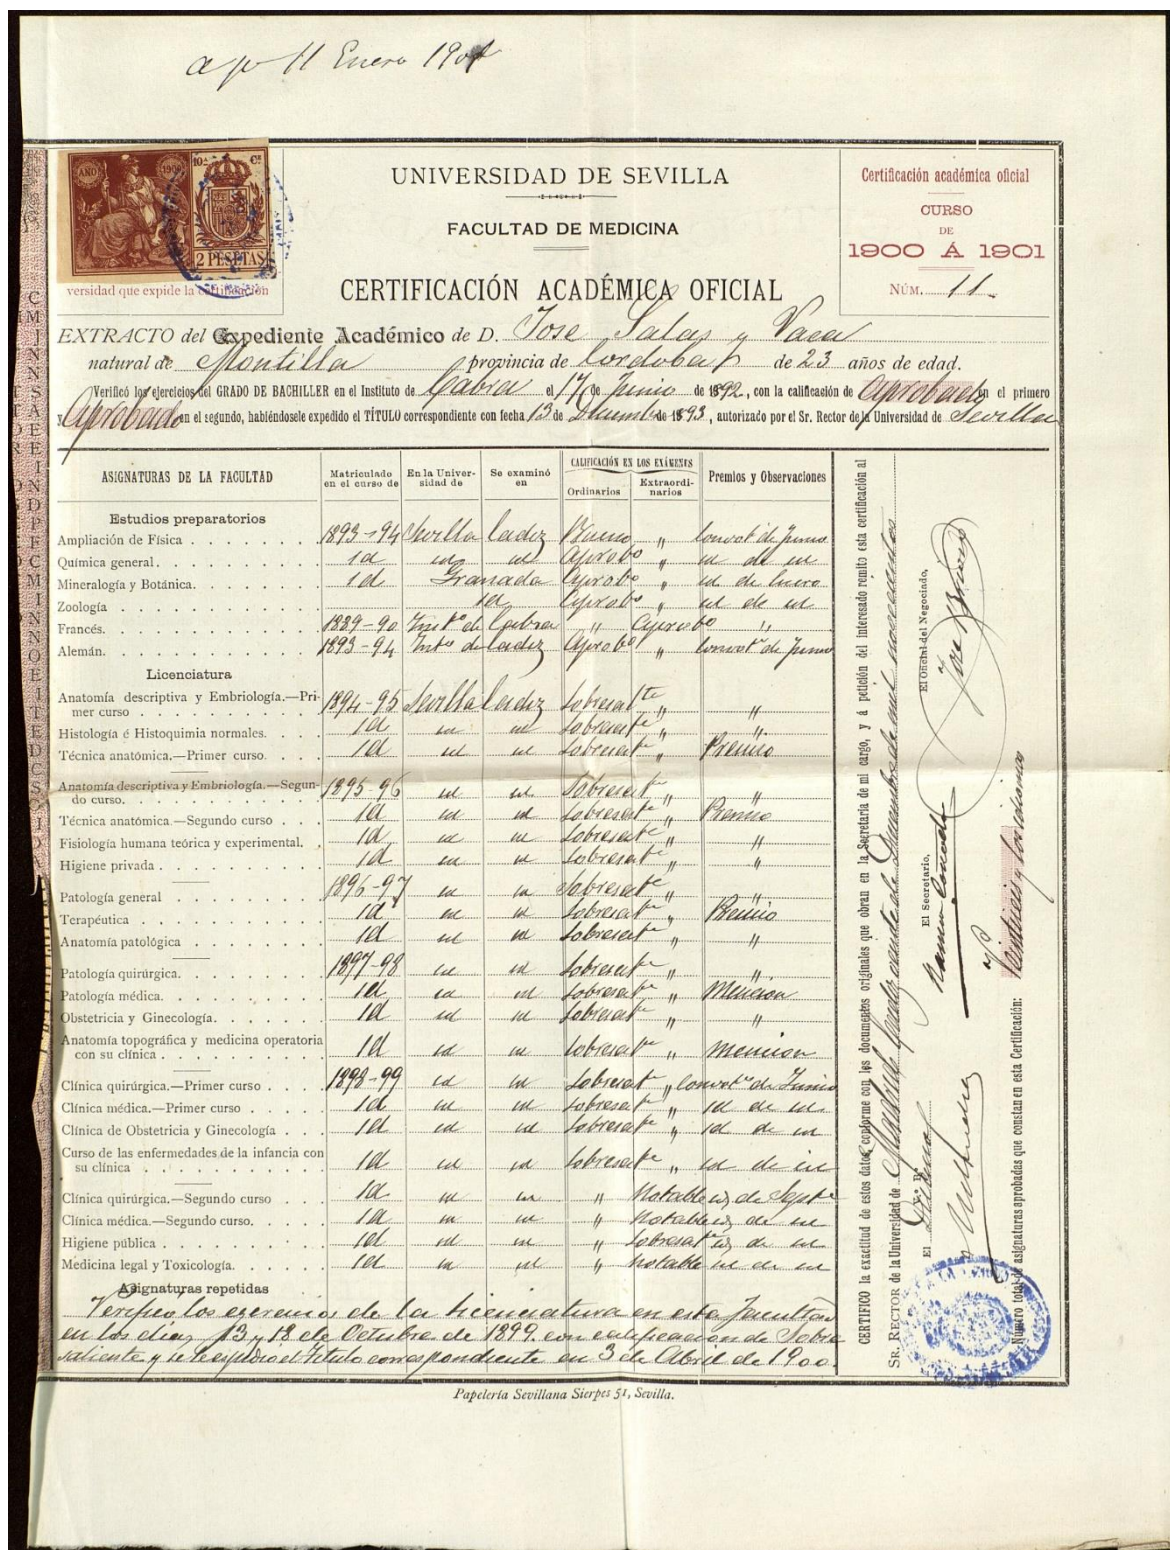 11 Enero 1901
AÑO 1900
10.ª Cº
2 PESETAS
versidad que expide la certificación
UNIVERSIDAD DE SEVILLA
FACULTAD DE MEDICINA
CERTIFICACIÓN ACADÉMICA OFICIAL
Certificación académica oficial
CURSO
DE
1900 Á 1901
NÚM. 11
EXTRACTO del Expediente Académico de D. Jose Salas y Vaca
natural de Montilla provincia de Cordoba de 23 años de edad.
Verificó los ejercicios del GRADO DE BACHILLER en el Instituto de Cabra el 17 de Junio de 1892, con la calificación de Aprobado en el primero
y Aprobado en el segundo, habiéndosele expedido el TÍTULO correspondiente con fecha 13 de Dicembe de 1893, autorizado por el Sr. Rector de la Universidad de Sevilla
ASIGNATURAS DE LA FACULTAD Matriculado en el curso de En la Universidad de Se examinó en CALIFICACIÓN EN LOS EXÁMENES Ordinarios Extraordinarios Premios y Observaciones
Estudios preparatorios
Ampliación de Física 1893-94 Sevilla Cadiz Bueno " Convot de Junio
Química general id id id Aprobº " id de id
Mineralogía y Botánica. id Granada Aprobº " id de Enero
Zoología id Aprobº " id de id
Francés. 1889-90 Instº de Cabra " Aprobº "
Alemán. 1893-94 Instº de Cadiz Aprobº " Convotª de Junio
Licenciatura
Anatomía descriptiva y Embriología.—Primer curso 1894-95 Sevilla Cadiz Sobresalte " "
Histología é Histoquimia normales. id id id Sobresalte " "
Técnica anatómica.—Primer curso. id id id Sobresalte " Premio
Anatomía descriptiva y Embriología.—Segundo curso. 1895-96 id id Sobresalte " "
Técnica anatómica.—Segundo curso id id id Sobresalte " Premio
Fisiología humana teórica y experimental. id id id Sobresalte " "
Higiene privada id id id Sobresalte " "
Patología general 1896-97 id id Sobresalte " "
Terapéutica id id id Sobresalte " Premio
Anatomía patológica id id id Sobresalte " "
Patología quirúrgica. 1897-98 id id Sobresalte " "
Patología médica. id id id Sobresalte " Mencion
Obstetricia y Ginecología. id id id Sobresalte " "
Anatomía topográfica y medicina operatoria con su clínica id id id Sobresalte " Mencion
Clínica quirúrgica.—Primer curso 1898-99 id id Sobresalte " Convotª de Junio
Clínica médica.—Primer curso id id id Sobresalte " id de id
Clínica de Obstetricia y Ginecología id id id Sobresalte " id de id
Curso de las enfermedades de la infancia con su clínica id id id Sobresalte " id de id
Clínica quirúrgica.—Segundo curso id id id " Notable id de Septe
Clínica médica.—Segundo curso. id id id " Notable id de id
Higiene pública id id id " Sobresalte id de id
Medicina legal y Toxicología. id id id " Notable id de id
Asignaturas repetidas
Verificó los ejercicios de la licenciatura en esta facultad
en los días 13 y 18 de Octubre de 1899 con calificación de Sobre
saliente y se le espidió el titulo correspondiente en 3 de Abril de 1900.
CERTIFICO la exactitud de estos datos, conforme con los documentos originales que obran en la Secretaría de mi cargo, y á petición del interesado remito esta certificación al
SR. RECTOR de la Universidad de Madrid. Cadiz de Diciembre de mil novecientos
El Oficial del Negociado,
Jose
El Secretario,
Ramon
V.º B.º
El Decano
Número total de asignaturas aprobadas que constan en esta Certificación: Veintiseis y los idiomas
Papelería Sevillana Sierpes 51, Sevilla.